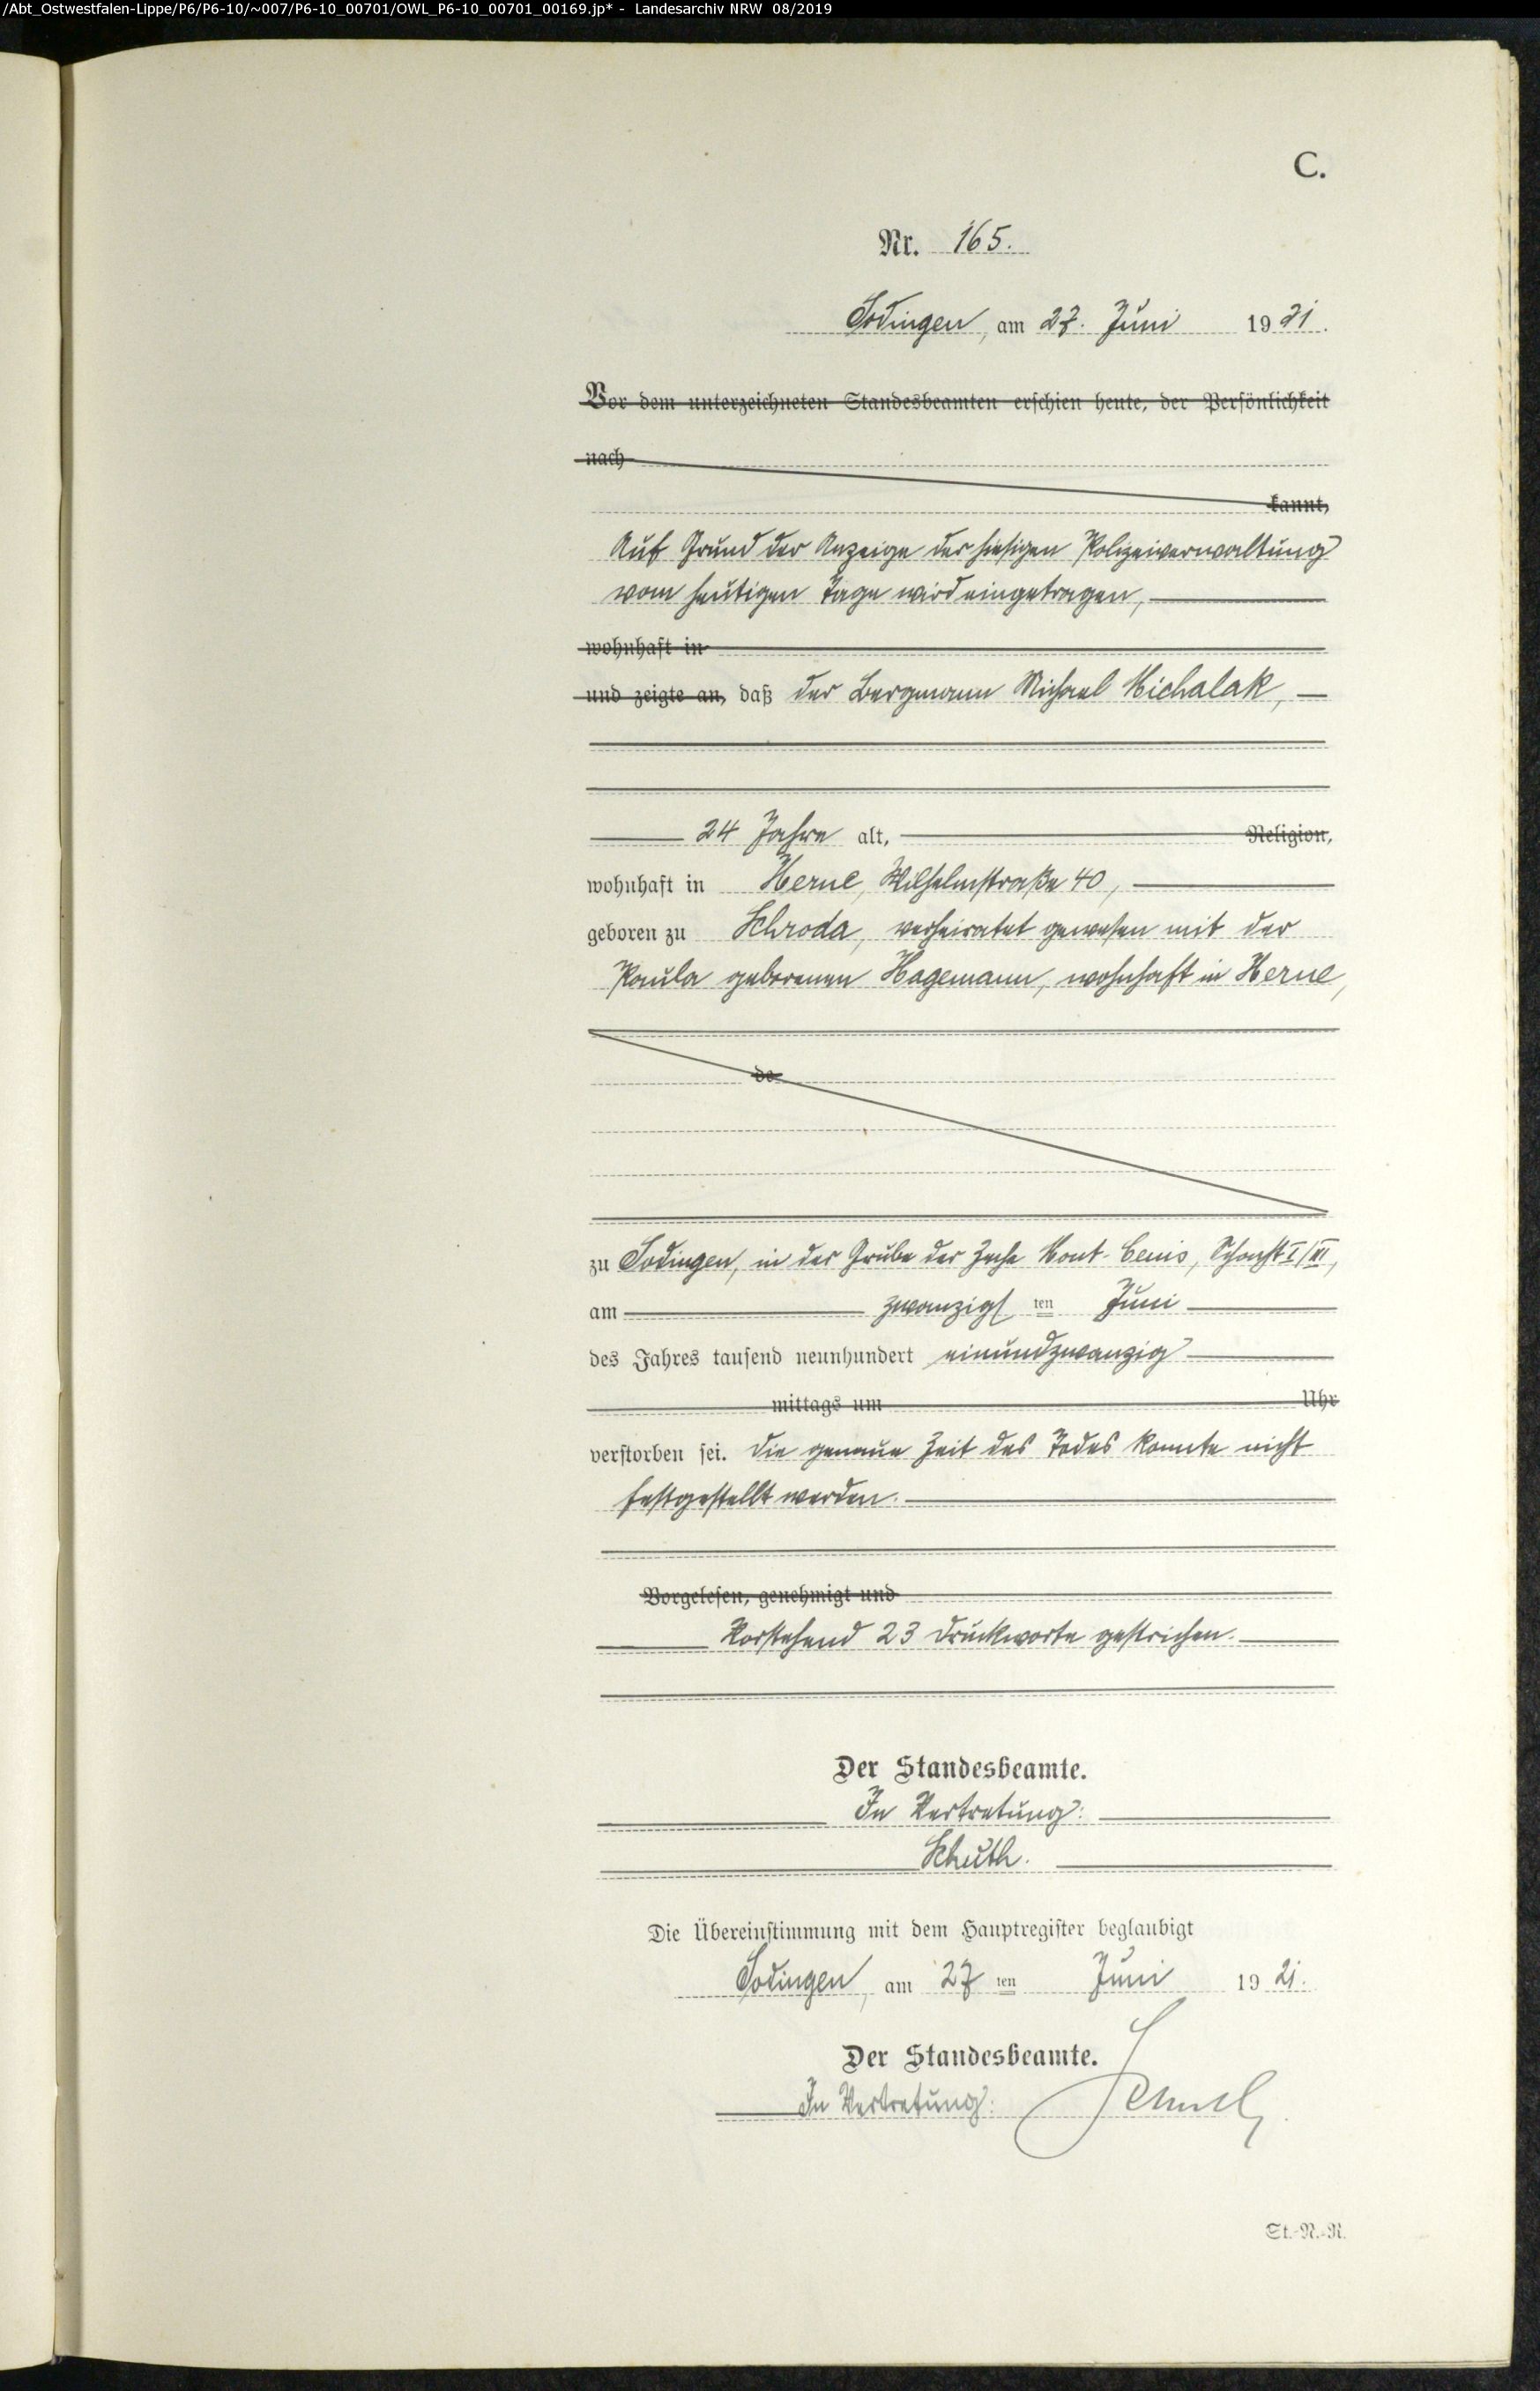 /Abt_Ostwestfalen-Lippe/P6/P6-10/~007/P6-10_00701/OWL_P6-10_00701_00169.jp* - Landesarchiv NRW 08/2019
C.
Nr. 165.
Sodingen, am 27. Juni 1921.
Vor dem unterzeichneten Standesbeamten erschien heute, der Persönlichkeit
nach
kannt,
Auf Grund der Anzeige der hiesigen Polizeiverwaltung
vom heutigen Tage wird eingetragen,
wohnhaft in
und zeigte an, daß der Bergmann Michael Michalak,
24 Jahre alt, Religion,
wohnhaft in Herne, Wilhelmstraße 40,
geboren zu Schroda, verheiratet gewesen mit der
Paula geborenen Hagemann, wohnhaft in Herne,
de
zu Sodingen, in der Grube der Zeche Mont-Cenis, Schacht I/VI,
am zwanzigsten Juni
des Jahres tausend neunhundert einundzwanzig
mittags um Uhr
verstorben sei. Die genaue Zeit des Todes konnte nicht
festgestellt werden.
Vorgelesen, genehmigt und
Vorstehend 23 Druckworte gestrichen.
Der Standesbeamte.
In Vertretung:
Schuth.
Die Übereinstimmung mit dem Hauptregister beglaubigt
Sodingen, am 27 ten Juni 1921.
Der Standesbeamte.
In Vertretung: Schuth
St.-N.-R.